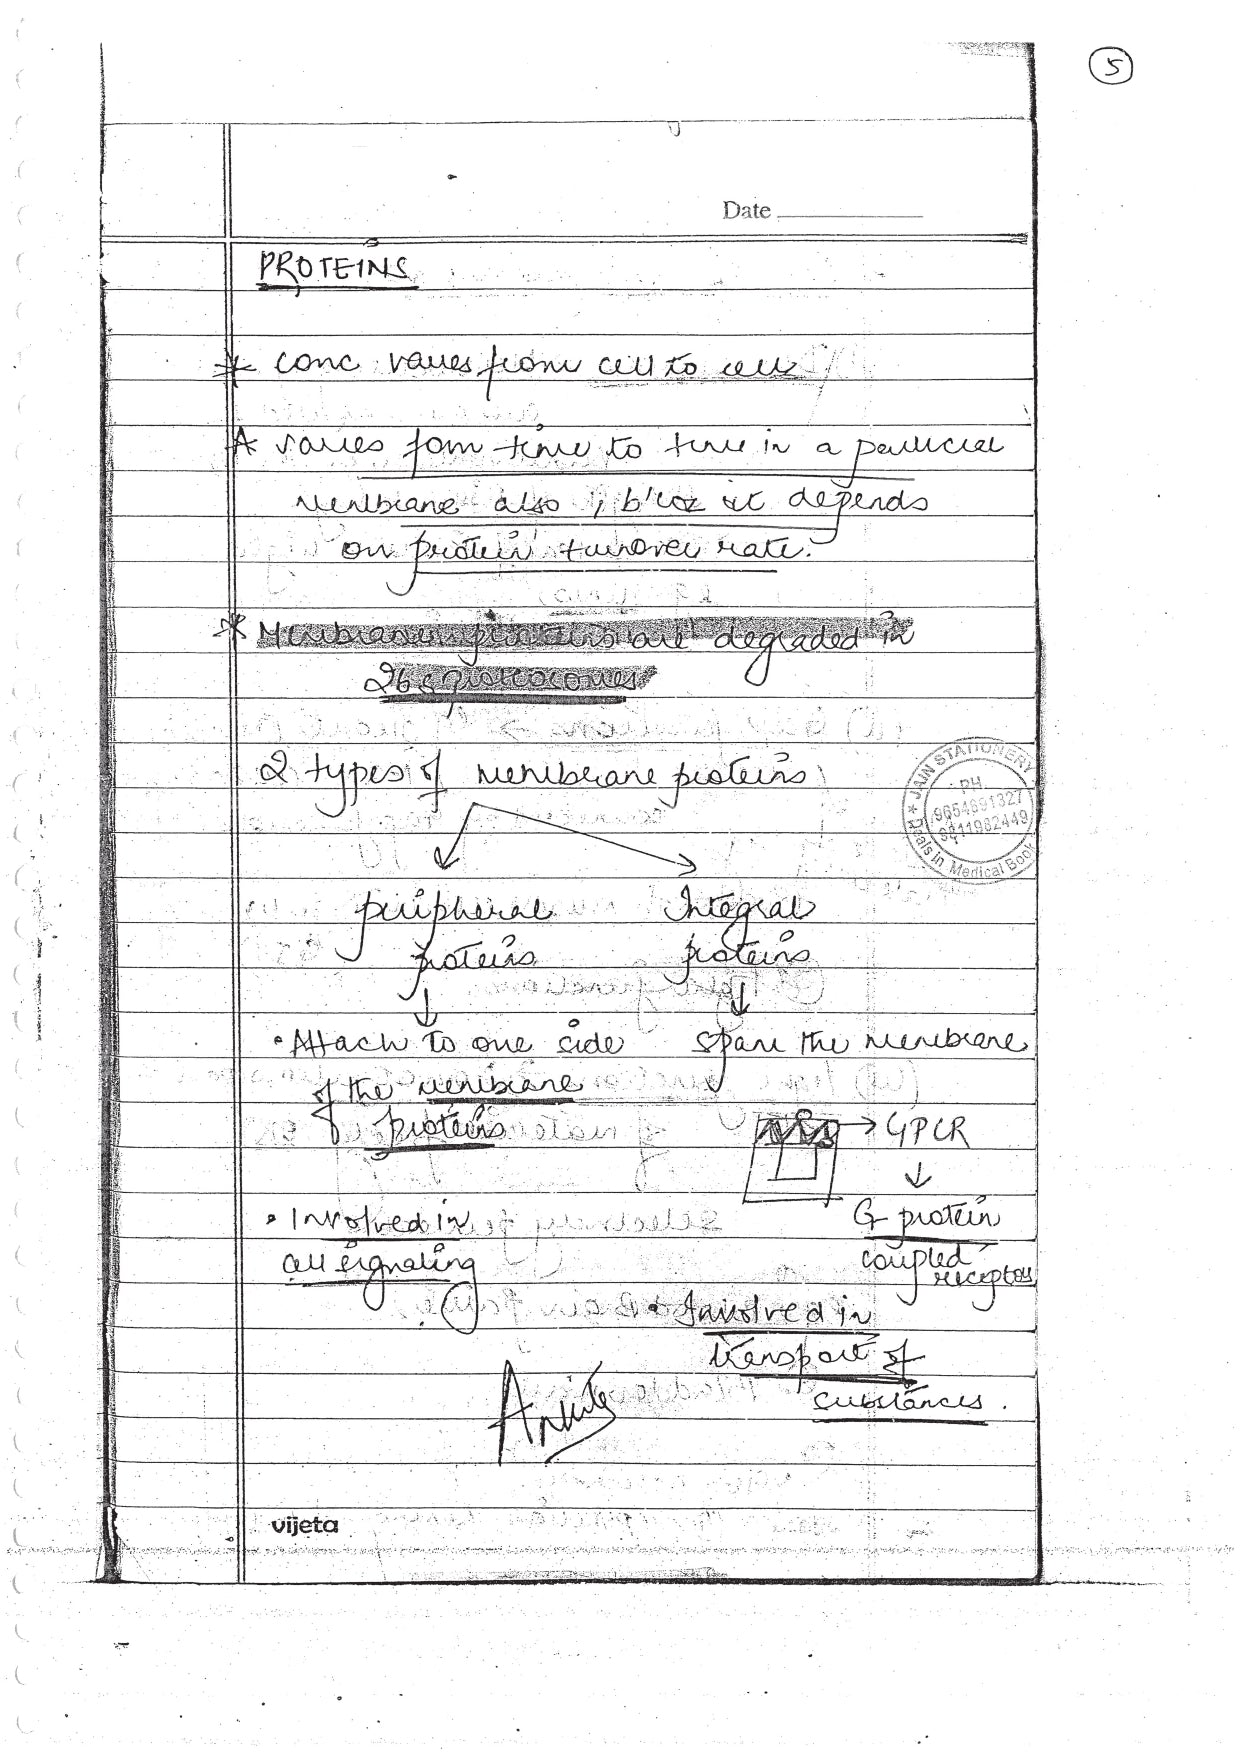 5
Date
PROTEINS
* conc varies from cell to cell
* varies fom time to time in a particular
membrane also, b'coz it depends
on protein turnover rate.
* Membrane proteins are degraded in
26 s proteosomes
2 types of membrane proteins
peripheral Integral
proteins proteins
• Attach to one side span the membrane
of the membrane
proteins → GPCR
• Involved in G protein
cell signaling coupled
receptors
• Involved in
transport of
substances.
Ankita
vijeta
JAIN STATIONERY
PH.
9654691327
9811982449
Deals in Medical Book